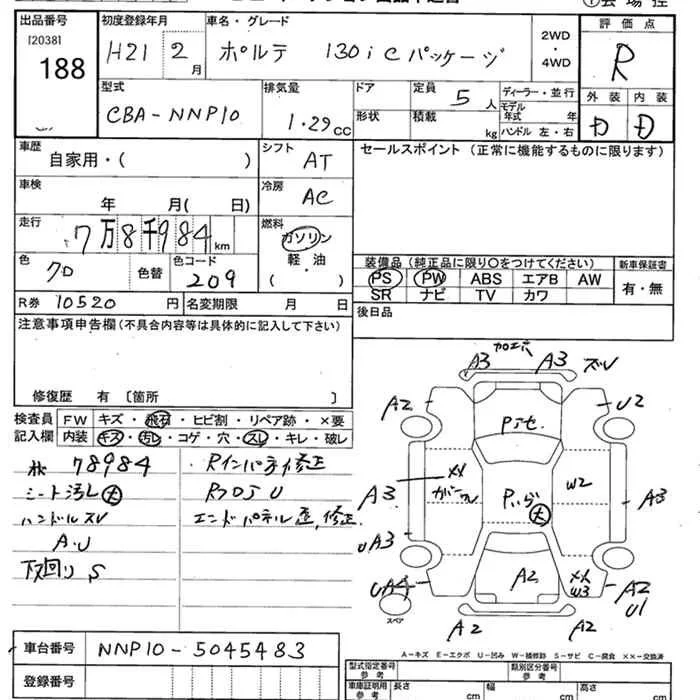 出品番号 初度登録年月 車名・グレード 評価点
[2038] 188 H21 2月 ポルテ 130iCパッケージ 2WD・4WD R
型式 排気量 ドア 定員 ディーラー・並行 外装 内装
CBA-NNP10 1.29cc 形状 積載 5人 kg モデル年式 年 ハンドル 左・右 D D
車歴 自家用・( ) シフト AT セールスポイント (正常に機能するものに限ります)
車検 年 月( 日) 冷房 AC
走行 7万8千984km 燃料 ガソリン
軽・油
( )
色 クロ 色替 色コード 209 装備品 (純正品に限り○をつけてください) 新車保証書
PS PW ABS エアB AW 有・無
SR ナビ TV カワ
R券 10520円 名変期限 月 日 後日品
注意事項申告欄 (不具合内容等は具体的に記入して下さい)
修復歴 有 〔箇所 〕
検査員記入欄 FW キズ・飛石・ヒビ割・リペア跡・×要
内装 キズ・汚レ・コゲ・穴・スレ・キレ・破レ
78984
シート汚レ大
ハンドルスレ
A.U
下回りS
Rインパネ修正
Rフロア U
エンドパネル歪、修正
A3 加エホ A3 ズレ
A2 U2
A3 XX W2 A3
大
UA3
UA4 A2 XX W3 A2 U1
スペア
A2 A2
A-キズ E-エクボ U-凹み W-補修跡 S-サビ C-腐食 ××-交換済
車台番号 NNP10-5045483
登録番号
型式指定番号 参考 類別区分番号 参考
車庫証明用 参考 長さ cm 幅 cm 高さ cm